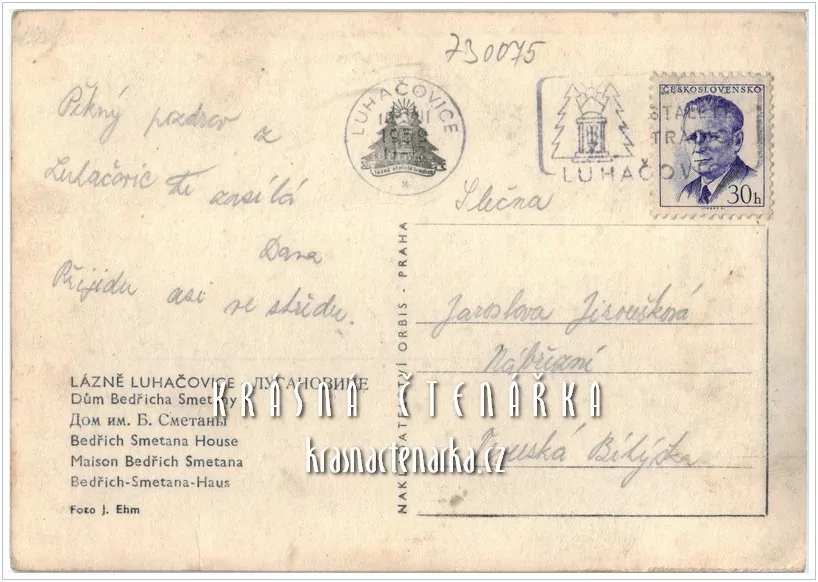 730075
LUHAČOVICE
ČESKOSLOVENSKO
STALETÁ
LUHAČOVI
30h
Pěkný pozdrav z
Luhačovic Ti zasílá
Dana
Přijedu asi ve středu.
Slečna
Jaroslava Jiroušková
Nábřežní
Bílýška
LÁZNĚ LUHAČOVICE ЛУГАЧОВИЦЕ
Dům Bedřicha Smetany
Дом им. Б. Сметаны
Bedřich Smetana House
Maison Bedřich Smetana
Bedřich-Smetana-Haus
Foto J. Ehm
NAKLADATELSTVÍ ORBIS - PRAHA
KRÁSNÁ ČTENÁŘKA
krasnactenarka.cz